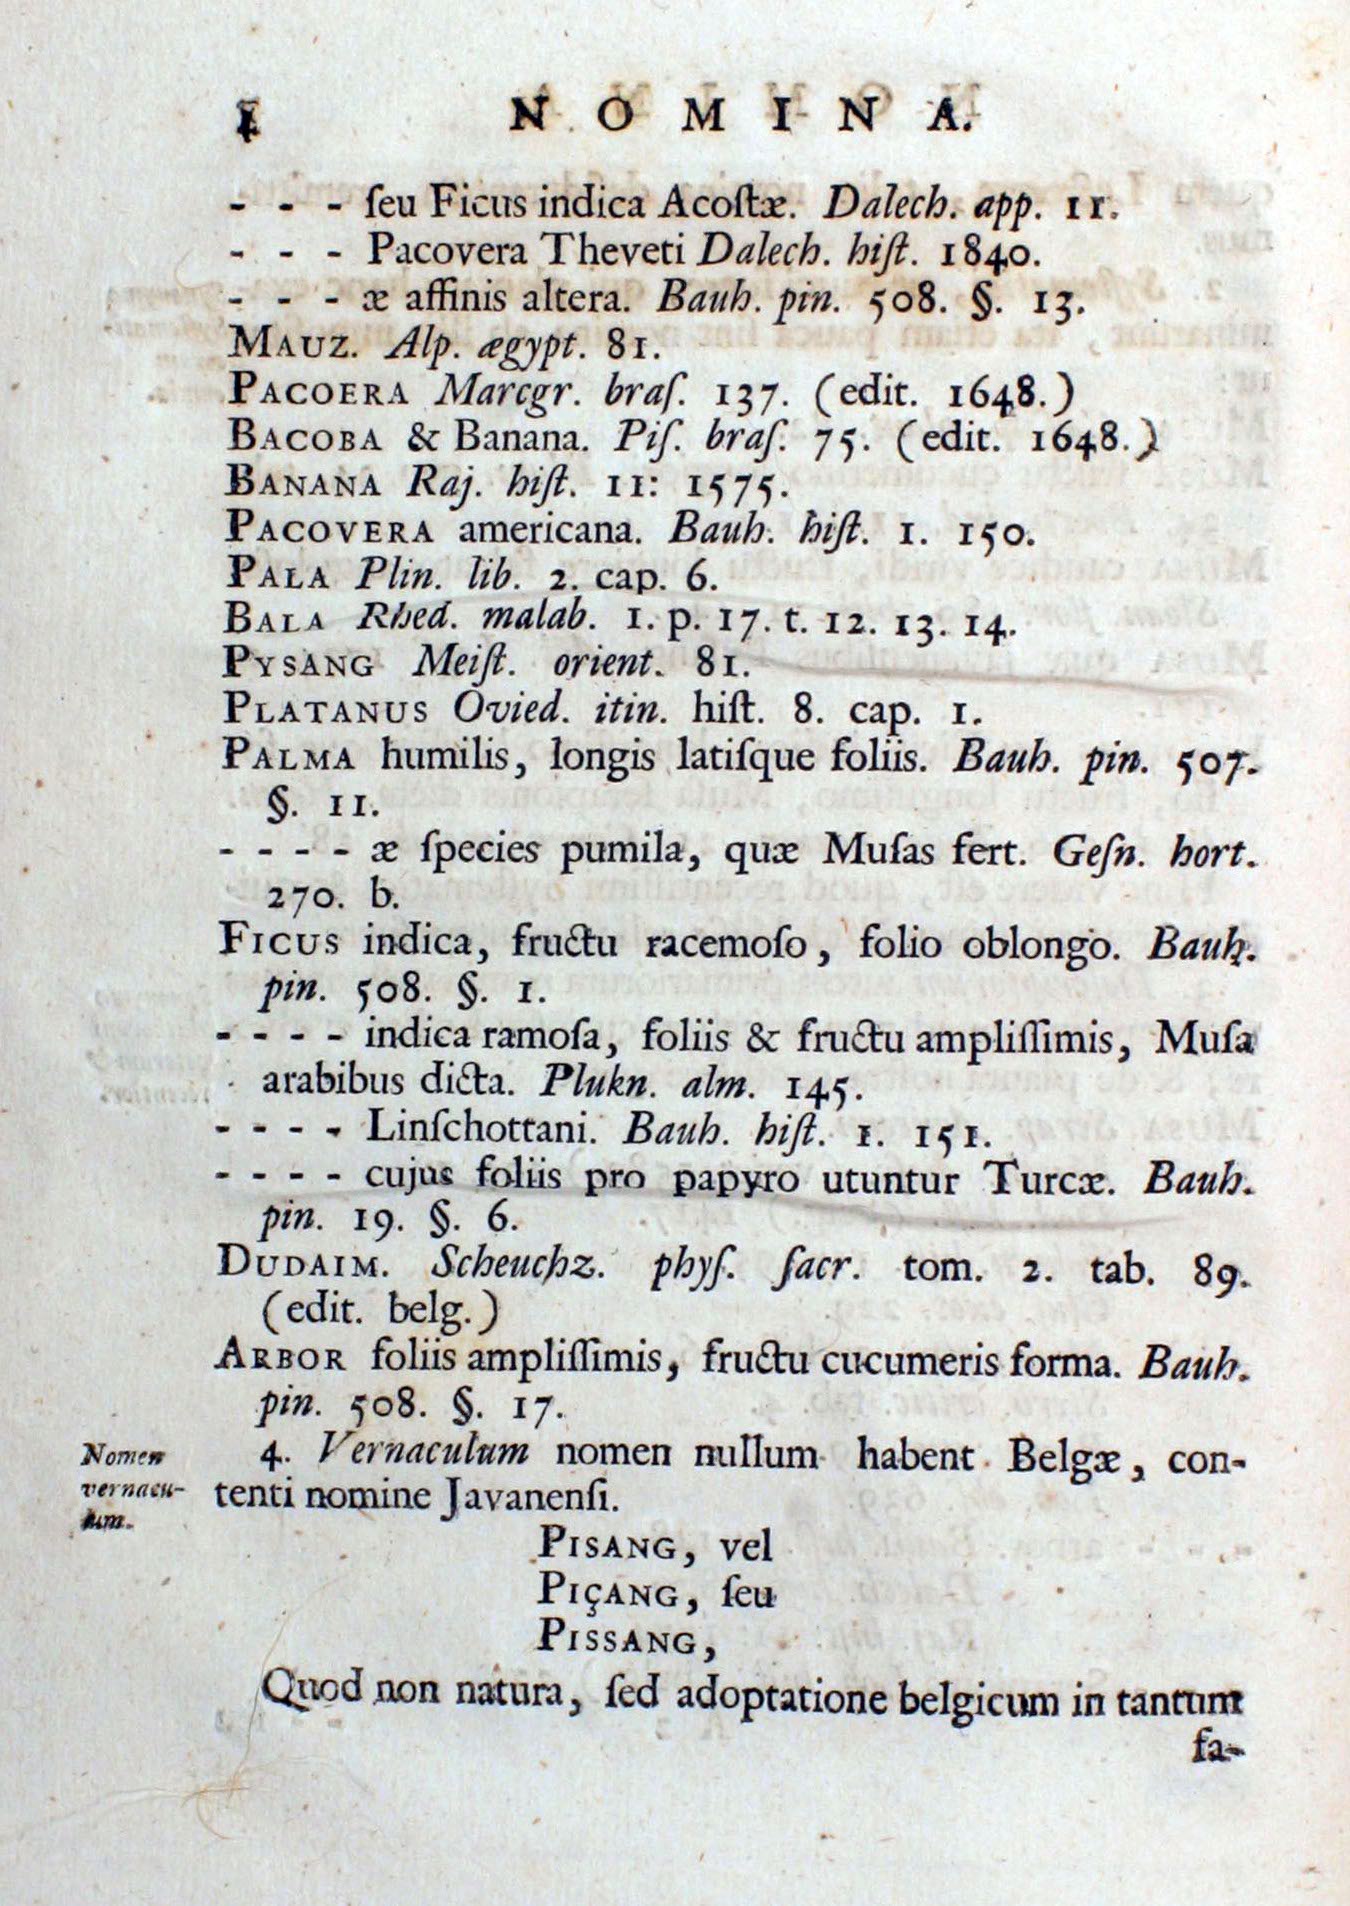 NOMINA.
- - - ſeu Ficus indica Acoſtæ. Dalech. app. 11.
- - - Pacovera Theveti Dalech. hiſt. 1840.
- - - æ affinis altera. Bauh. pin. 508. §. 13.
MAUZ. Alp. ægypt. 81.
PACOERA Marcgr. braſ. 137. (edit. 1648.)
BACOBA & Banana. Piſ. braſ. 75. (edit. 1648.)
BANANA Raj. hiſt. 11: 1575.
PACOVERA americana. Bauh. hiſt. 1. 150.
PALA Plin. lib. 2. cap. 6.
BALA Rhed. malab. 1. p. 17. t. 12. 13. 14.
PYSANG Meiſt. orient. 81.
PLATANUS Ovied. itin. hiſt. 8. cap. 1.
PALMA humilis, longis latiſque foliis. Bauh. pin. 507.
§. 11.
- - - - æ ſpecies pumila, quæ Muſas fert. Geſn. hort.
270. b.
FICUS indica, fructu racemoſo, folio oblongo. Bauh.
pin. 508. §. 1.
- - - - indica ramoſa, foliis & fructu ampliſſimis, Muſa
arabibus dicta. Plukn. alm. 145.
- - - - Linſchottani. Bauh. hiſt. 1. 151.
- - - - cujus foliis pro papyro utuntur Turcæ. Bauh.
pin. 19. §. 6.
DUDAIM. Scheuchz. phyſ. ſacr. tom. 2. tab. 89.
(edit. belg.)
ARBOR foliis ampliſſimis, fructu cucumeris forma. Bauh.
pin. 508. §. 17.
Nomen
vernacu-
lum.
4. Vernaculum nomen nullum habent Belgæ, con-
tenti nomine Javanenſi.
PISANG, vel
PIÇANG, ſeu
PISSANG,
Quod non natura, ſed adoptatione belgicum in tantum
fa-